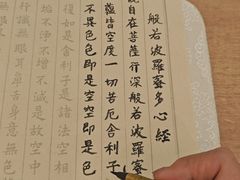 般若波羅蜜多心經
自在菩薩行深般若波羅蜜
蘊皆空度一切苦厄舍利子
不異色色即是空空即是色
復如是舍利子是諸法空相
不淨不增不減是故空中
行識無眼耳鼻舌身意無色